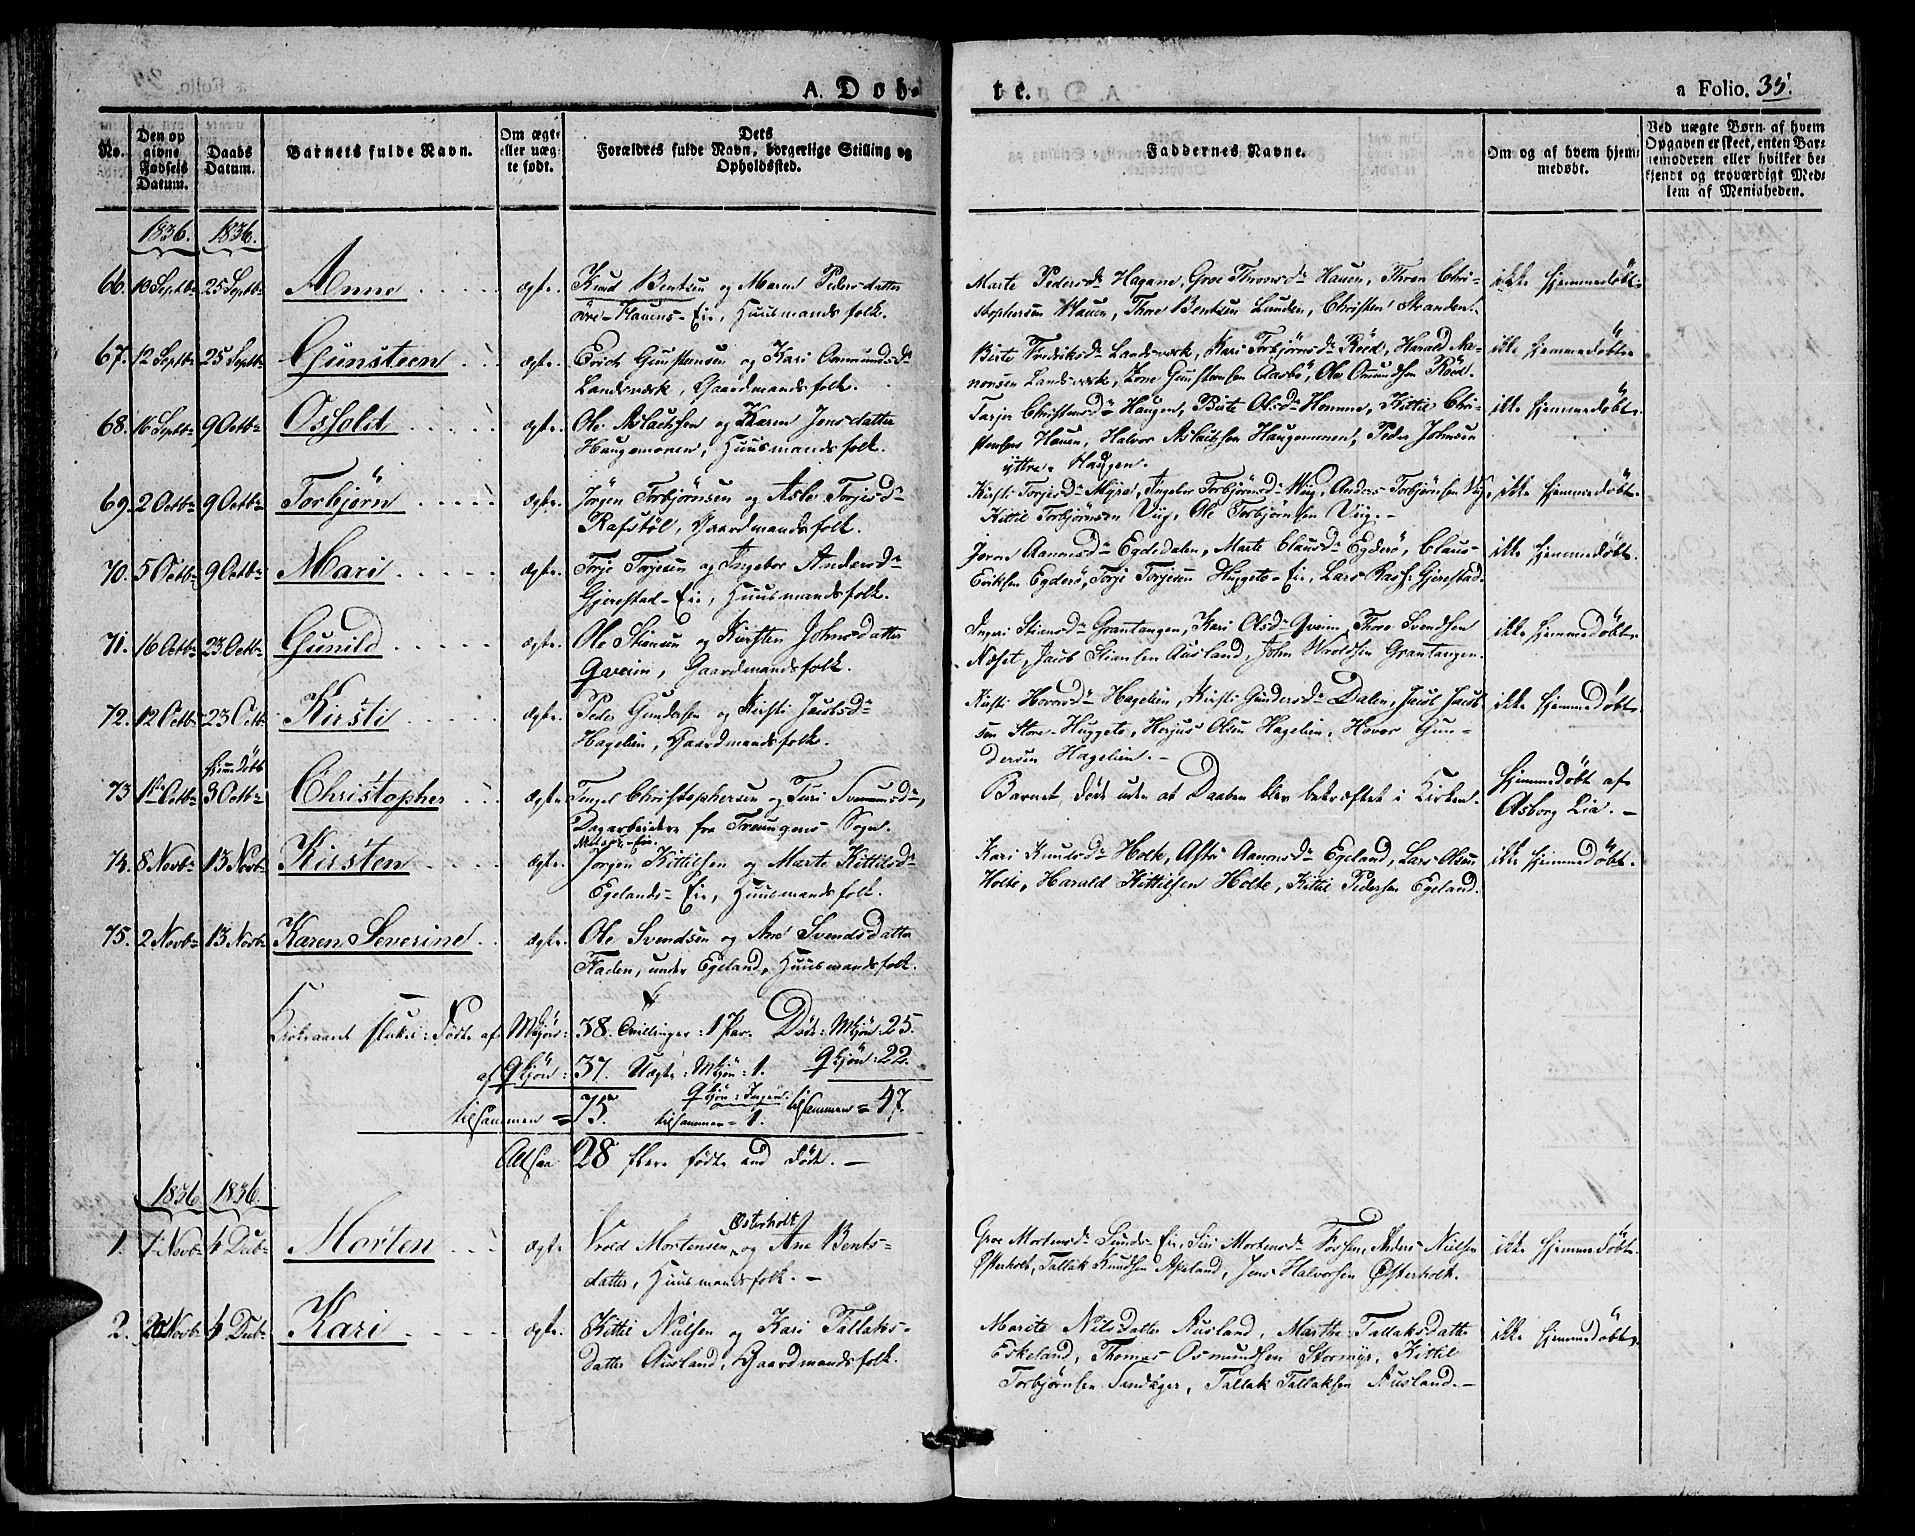 A. Døb-
te.
a Folio. 35.
No.
Den op
givne
Fødsels
Datum.
Daabs
Datum.
Barnets fulde Navn.
Om ægte
eller uæg
te født.
Dets
Forældres fulde Navn, borgerlige Stilling og
Opholdssted.
Faddernes Navne.
Om og af hvem hjem
medøbt.
Ved uægte Børn af hvem
Opgaven er skeet, enten Bar-
nemoderen eller hvilket be-
kjendt og troværdigt Med-
lem af Menigheden.
1836. 1836.
66. 10 Septb: 25 Septb: Anne ægte. Knud Bentsen og Maren Pedersdatter
øvre-Hauens-Eie, Huusmandsfolk.
Marte Pedersd: Hagane, Groe Thronsd: Hauen, Thron Chri-
stophersen Hauen, Thore Bentsen Lunden, Christen Stranden.
ikke hjemmedøbt.
67. 12 Septb: 25 Septb: Gunsteen ægte. Erich Gunstensen og Kari Aamundsd:
Landsværk, Gaardmandsfolk.
Birte Fredriksd: Landsværk, Kari Torbjørnsd: Röed, Harald Aa-
nonsen Landsværk, Gunstensen Aasbø, Ole Omundsen Röed.
ikke hjemmedøbt.
68. 16 Septb: 9 Octb: Ossold ægte. Ole Aslachsen og Karen Jensdatter
Haugemoen, Huusmandsfolk.
Tarjer Christensd: Haugen, Birte Olsd: Homme, Kittil Chri-
stensen Hauen, Halvor Aslachsen Haugemonen, Peder Johnsen
yttre Haugen.
ikke hjemmedøbt.
69. 2 Octb: 9 Octb: Torbjørn ægte. Jörgen Torbjörnsen og Aslov Torjesd:
Rafstøl, Gaardmandsfolk.
Kirsti Torjesd: Myra, Ingebor Torbjörnsd: Viig, Anders Torbjörnsen Viig,
Kittil Torbjörnsen Viig, Ole Torbjörnsen Viig.
ikke hjemmedøbt.
70. 5 Octb: 9 Octb: Mari ægte. Torje Torjesen og Ingebor Andersd:
Gjerestad-Eie, Huusmandsfolk.
Aanonsd: Egdedalen, Marte Clausd: Egderø, Claus
Eriksen Egderø, Torje Torjesen Huggets-Eie, Lars Gjerestad.
ikke hjemmedøbt.
71. 16 Octb: 23 Octb: Gunild ægte. Ole Stiansen og Kirsten Johnsdatter
Qveim, Gaardmandsfolk.
Ingeri Stiansd: Grantangen, Kari Olsd: Qveim, Thore Svendsen
Næset, Jacob Stiansen Ausland, John Wroldsen Grantangen.
ikke hjemmedøbt.
72. 12 Octb: 23 Octb: Kirsti ægte. Peder Gundersen og Kirsti Jacobsd:
Hagelien, Gaardmandsfolk.
Kirsti Hovorsd: Hagelien, Kirsti Gundersd: Dalen, Jacob Jacob
sen Store-Huggets, Herjus Olsen Hagelien, Hovor Gun-
dersen Hagelien.
ikke hjemmedøbt.
73 1ste Octb: hjemdøbt 3 Octb: Christopher ægte. Tengel Christophersen og Turi Svenunsd:
Dagarbeidere fra Treungens-Sogn.
Barnet døde uden at Daaben blev bekræftet i Kirken.
hjemmedøbt af
Asborg Lia.
74. 8 Novb: 13 Novb: Kirsten ægte. Jørgen Kittilsen og Marte Kittilsd:
Egelands-Eie, Huusmandsfolk.
Kari Knudsd: Holte, Astri Aanonsd: Egeland, Lars Olsen
Holte, Harald Kittilsen Holte, Kittil Pedersen Egeland.
ikke hjemmedøbt.
75. 2 Novb: 13 Novb: Karen Severine ægte. Ole Svendsen og Ane Svendsdatter
Fladen, under Egeland, Huusmandsfolk.
Kirkeaaret sluttet: Fødte af Mkjön: 38. Tvillinger: 1 Par. Døde: Mkjön: 25.
af Qkjön: 37. Uægte: Mkjön: 1. Qkjön: 22.
Qkjön: Ingen.
tilsammen = 75. tilsammen = 1. tilsammen = 47.
Altsaa 28 flere födte end døde.
1836. 1836.
1. 7 Novb: 4 Decb: Morten ægte. Vrold Mortensen Østerholt og Ane Bents-
datter, Huusmandsfolk.
Groe Mortensd: Sunds-Eie, Siri Mortensd: Fossen, Anders Nielsen
Østerholt, Tallak Knudsen Apeland, Jens Halvorsen Østerholt.
ikke hjemmedøbt.
2. 20 Novb: 4 Decb: Kari ægte. Kittil Nielsen og Kari Tallaks-
datter Ausland, Gaardmandsfolk.
Marite Nilsdatter Ausland, Marthe Tallaksdatter
Eskeland, Thomas Osmundsen Stormyr, Kittil
Torbjørnsen Sandager, Tallak Tallaksen Ausland.
ikke hjemmedøbt.